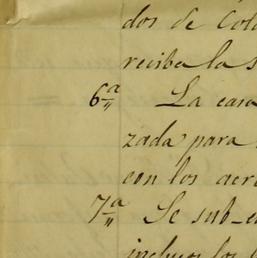 dos de Col
reciba la s
6ª La casa
zada para
con los acre
7ª Se sub-e
incluso los